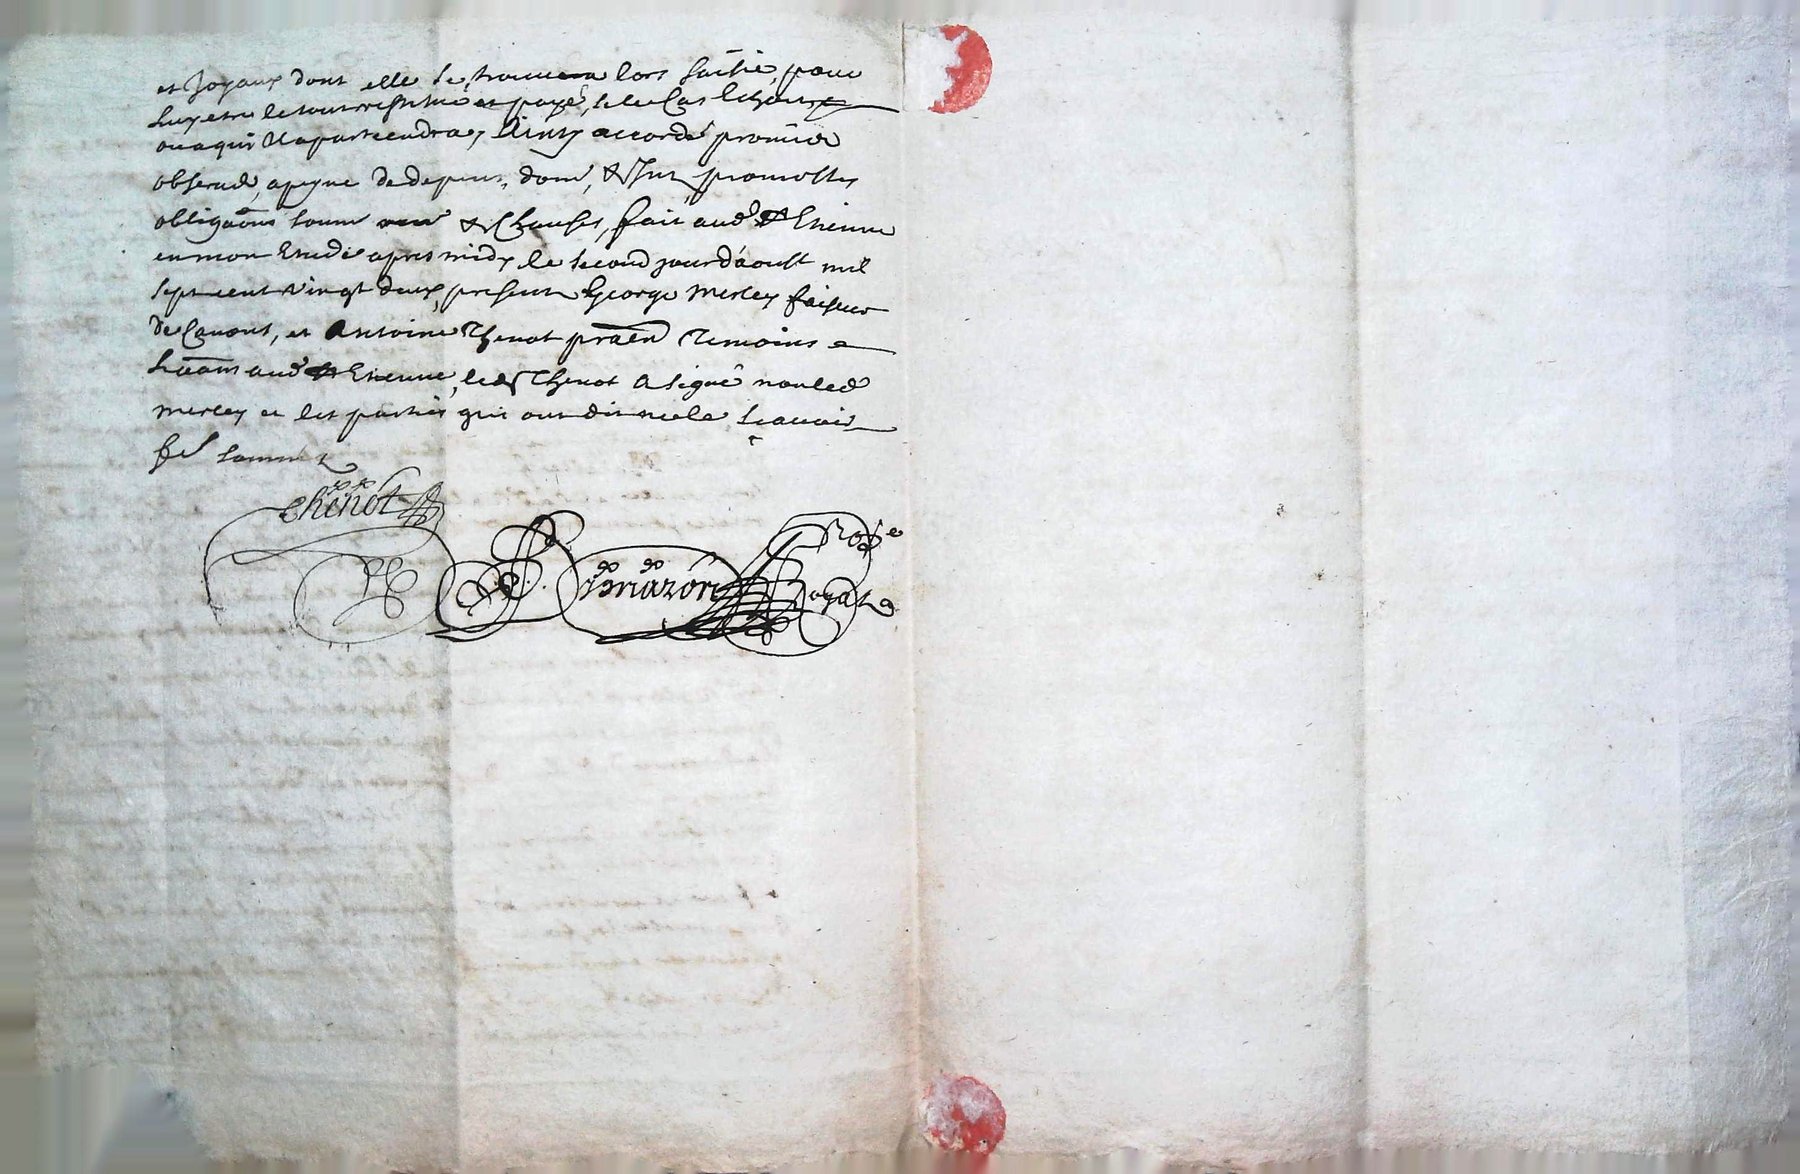 et Joyaux dont elle se trouvera lors saisie, pour
luy etre le tout restitué et payé, sele Cas lecheant
ou aqui Ilapartiendra, Ainsy accordé promis
observer, apeyne de depens, dom, & Int promesses
obligaôns soum & Clauses, fait aud St Etienne
en mon Etude apres midy le second jour d'aoust mil
sept cent vingt deux, presents George merley faiseur
de Canons, et Antoine Thenot praen Temoins
aud St Etienne, led St Thenot a signé non led
merley et les parties qui ont dit ne le scavoir
somm
thenot